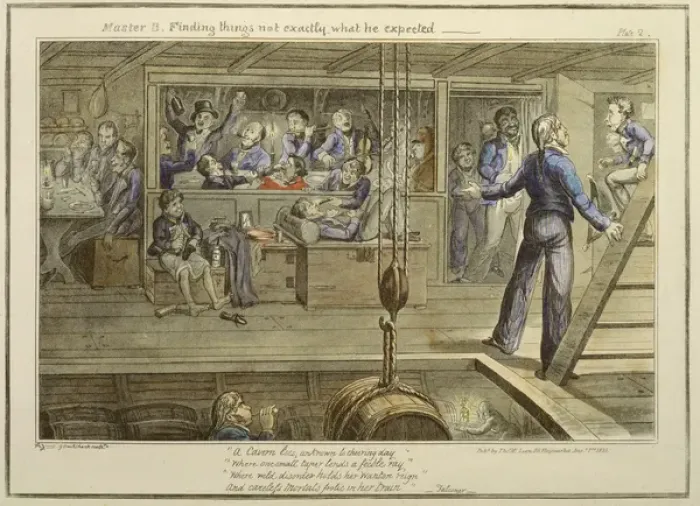 Master B. Finding things not exactly what he expected
Plate 2.
"A Cavern lies, unknown to cheering day,
"Where one small taper lends a feeble ray,"
"Where wild disorder holds her wanton reign"
And careless mortals frolic in her train"
Falconer